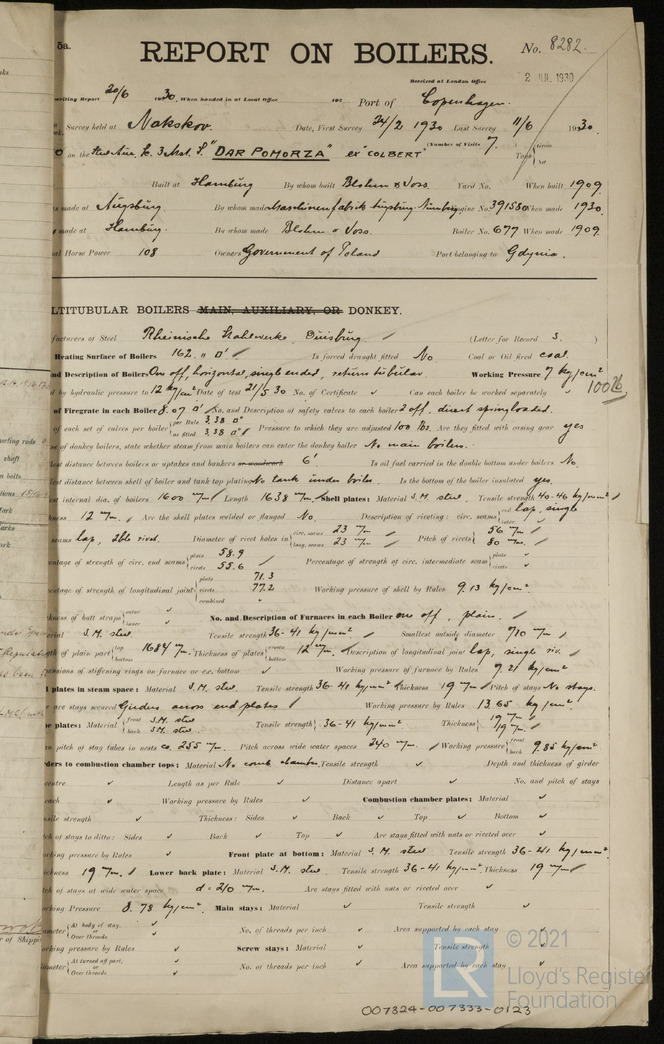 5a.
REPORT ON BOILERS.
No. 8282.
Received at London Office
2 JUL 1930
writing Report 20/6 1930. When handed in at Local Office 192 Port of Copenhagen.
Survey held at Nakskov. Date, First Survey 24/2 1930 Last Survey 11/6 1930.
(Number of Visits 7.
on the "DAR POMORZA" ex "COLBERT" Tons { Gross Net
Built at Hamburg By whom built Blohm & Voss. Yard No. When built 1909
made at Augsburg By whom made Maschinenfabrik Augsburg Nürnberg Engine No. 391580 When made 1930.
made at Hamburg. By whom made Blohm & Voss. Boiler No. 677 When made 1909.
Horse Power 108 Owners Government of Poland Port belonging to Gdynia.
LTITUBULAR BOILERS MAIN, AUXILIARY, OR DONKEY.
facturers of Steel Rheinische Stahlwerke, Duisburg. (Letter for Record S. )
Heating Surface of Boilers 162. " □' Is forced draught fitted No Coal or Oil fired coal.
and Description of Boilers One off, horizontal, single ended, return tubular Working Pressure 7 kg/cm²
100 lb
by hydraulic pressure to 12 kg/cm² Date of test 21/5 30 No. of Certificate ✓ Can each boiler be worked separately ✓
of Firegrate in each Boiler 8.07 □' No. and Description of safety valves to each boiler 2 off, direct springloaded.
of each set of valves per boiler { per Rule 3.38 □" as fitted 3.38 □" Pressure to which they are adjusted 100 lbs. Are they fitted with easing gear yes
of donkey boilers, state whether steam from main boilers can enter the donkey boiler No main boilers.
est distance between boilers or uptakes and bunkers or woodwork 6' Is oil fuel carried in the double bottom under boilers No.
est distance between shell of boiler and tank top plating No tank under boiler. Is the bottom of the boiler insulated yes.
est internal dia. of boilers 1600 m/m Length 1638 m/m Shell plates: Material S.M. steel. Tensile strength 40-46 kg/mm²
ness 12 m/m. Are the shell plates welded or flanged No. Description of riveting: circ. seams { end lap, single inter. ✓
seams lap, dble rivet. Diameter of rivet holes in { circ. seams 23 m/m long. seams 23 m/m Pitch of rivets { 56 m/m 80 m/m.
entage of strength of circ. end seams { plate 58.9 rivets 55.6 Percentage of strength of circ. intermediate seam { plate ✓ rivets ✓
centage of strength of longitudinal joint { plate 71.3 rivets 77.2 combined ✓ Working pressure of shell by Rules 9.13 kg/cm²
kness of butt straps { outer ✓ inner ✓ No. and Description of Furnaces in each Boiler one off, plain.
erial S.M. steel Tensile strength 36-41 kg/mm² Smallest outside diameter 710 m/m
gth of plain part { top 1684 m/m. bottom Thickness of plates { crown bottom 12 m/m. Description of longitudinal joint lap, single riv.
ensions of stiffening rings on furnace or c.c. bottom ✓ Working pressure of furnace by Rules 7.21 kg/cm²
plates in steam space: Material S.M. steel Tensile strength 36-41 kg/mm² Thickness 19 m/m Pitch of stays No stays.
are stays secured Girders across end plates Working pressure by Rules 13.65 kg/cm²
plates: Material { front S.M. steel back S.M. steel Tensile strength { 36-41 kg/mm² Thickness { 19 m/m 19 m/m
n pitch of stay tubes in nests ca. 255 m/m. Pitch across wide water spaces 240 m/m. Working pressure { front back 9.85 kg/cm²
ders to combustion chamber tops: Material No comb. chamber. Tensile strength ✓ Depth and thickness of girder
centre ✓ Length as per Rule ✓ Distance apart ✓ No. and pitch of stays
each ✓ Working pressure by Rules ✓ Combustion chamber plates: Material ✓
sile strength ✓ Thickness: Sides ✓ Back ✓ Top ✓ Bottom ✓
ch of stays to ditto: Sides ✓ Back ✓ Top ✓ Are stays fitted with nuts or riveted over ✓
orking pressure by Rules ✓ Front plate at bottom: Material S.M. steel Tensile strength 36-41 kg/mm².
ickness 19 m/m. Lower back plate: Material S.M. steel Tensile strength 36-41 kg/mm² Thickness 19 m/m
tch of stays at wide water space d=210 m/m. Are stays fitted with nuts or riveted over ✓
orking Pressure 8.78 kg/cm². Main stays: Material ✓ Tensile strength ✓
ameter { At body of stay, or Over threads ✓ No. of threads per inch ✓ Area supported by each stay ✓
orking pressure by Rules ✓ Screw stays: Material ✓ Tensile strength ✓
ameter { At turned off part, or Over threads ✓ No. of threads per inch ✓ Area supported by each stay ✓
LR
© 2021
Lloyd's Register
Foundation
007324-007333-0123